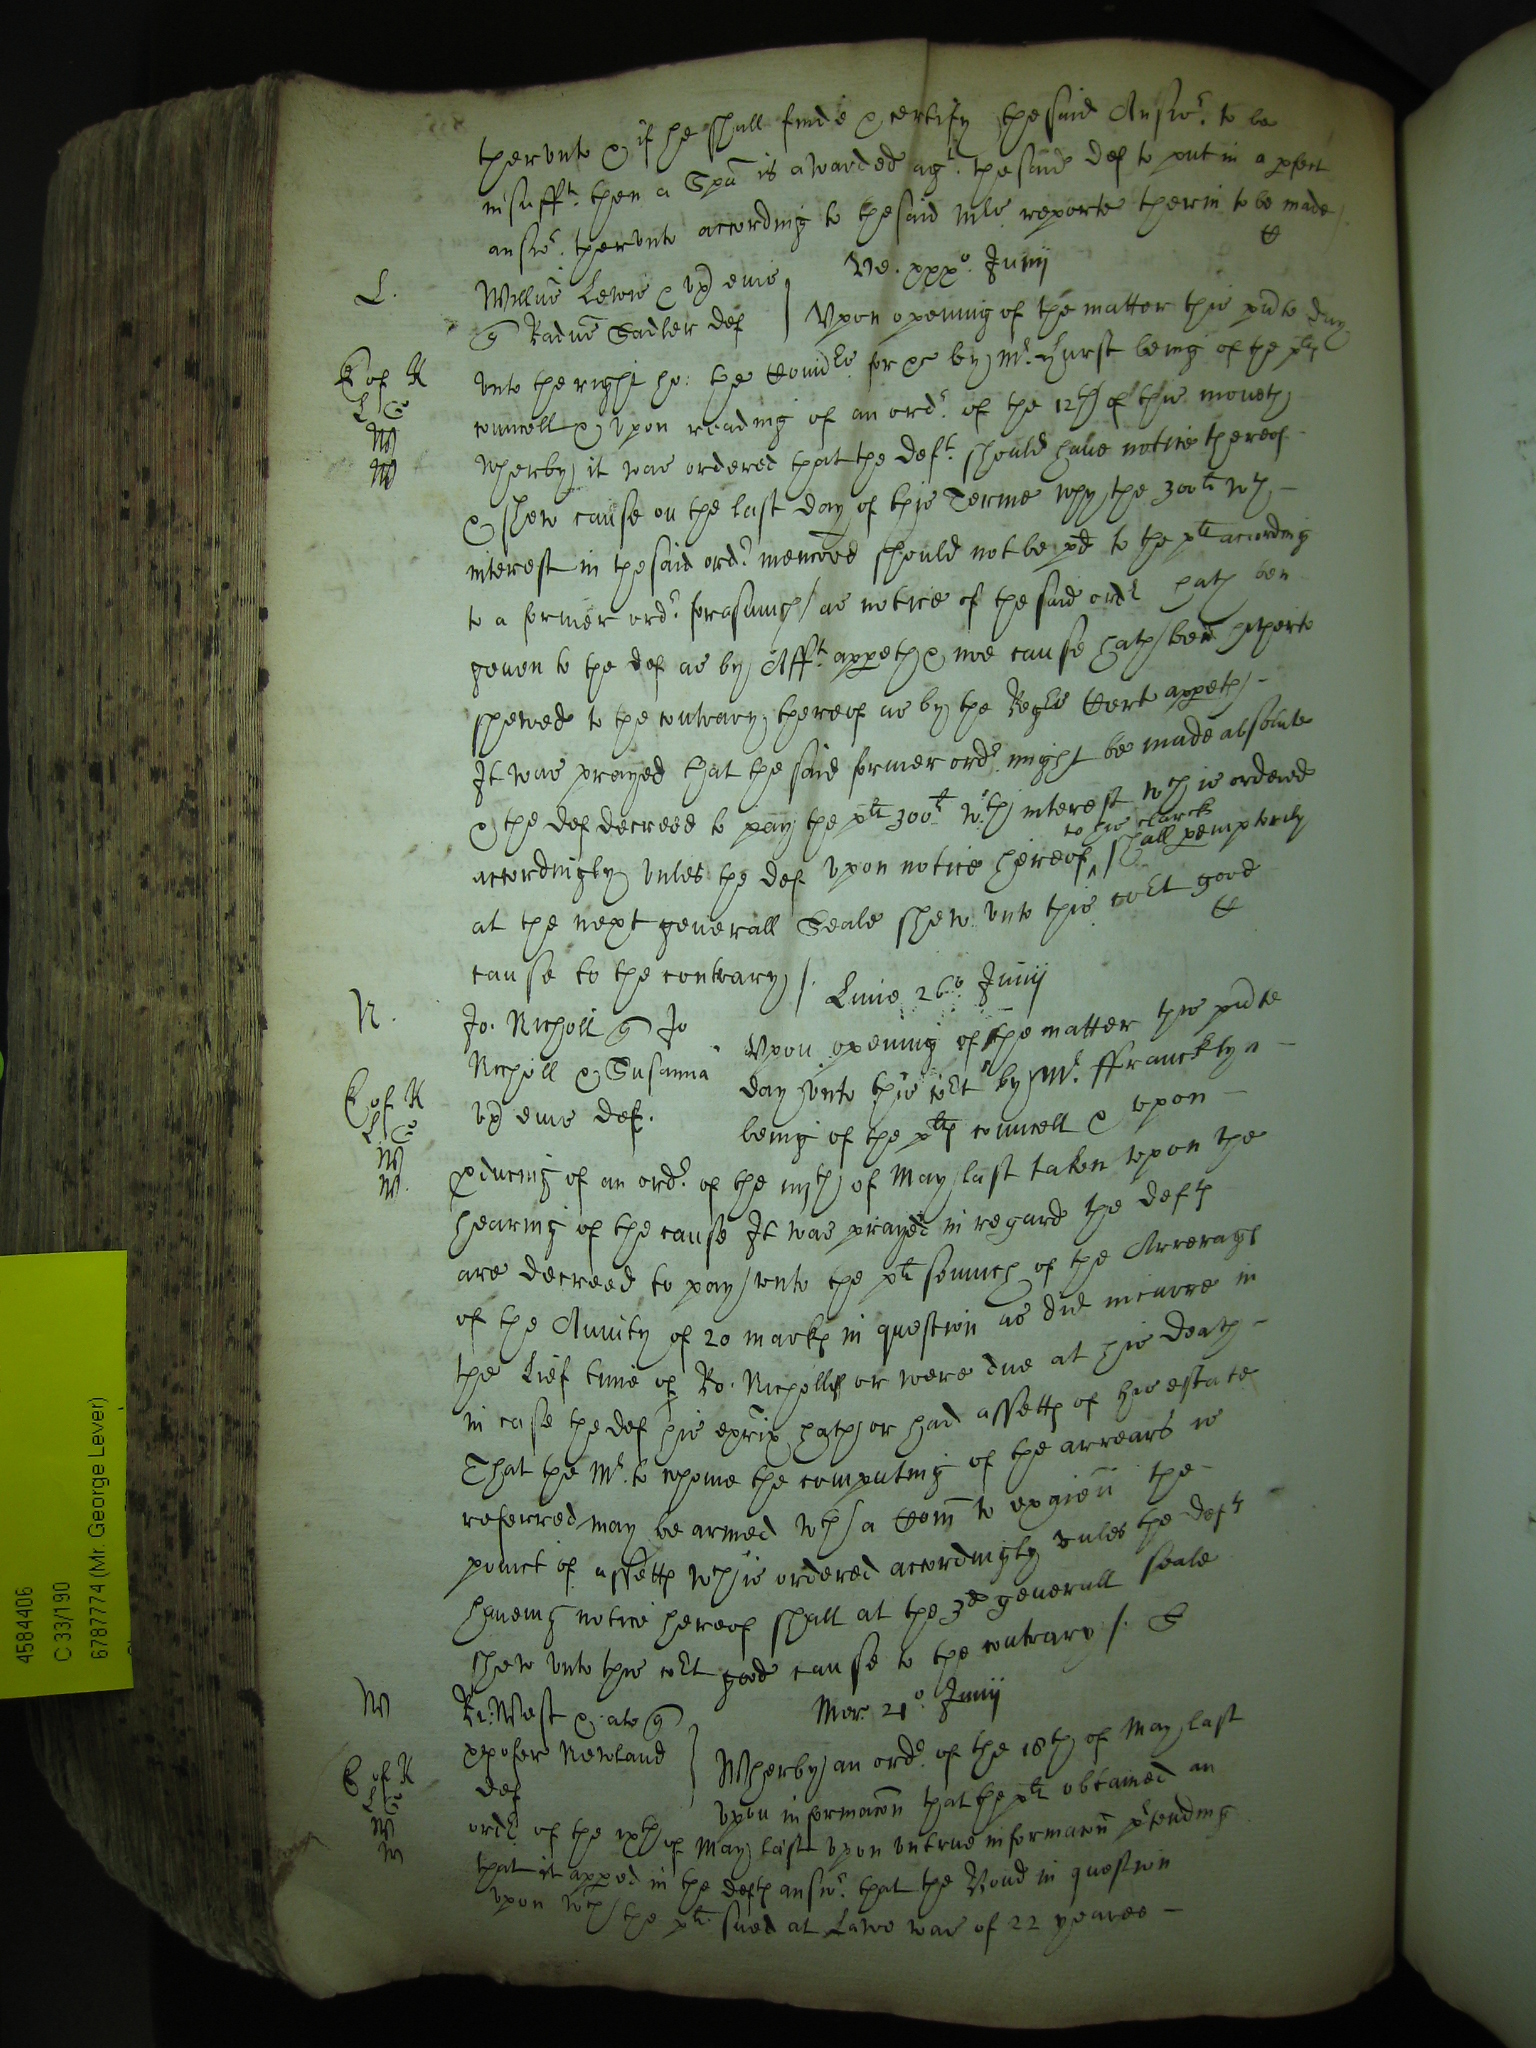 thervnto & if he shall finde & certify the said Answr. to be
insufft. then a Spa is awarded agt. the said def to put in a pfect
answr. thervnto according to the said Mrs reporte therin to be made /.
Ve. xxxo. Junij
L.
Willus Lewis & vx eius
Radus Sadler def
Vpon opening of the matter this pnte day
vnto the right ho: the for &c by Mr. Hurst being of the plts
E of K
L C
W
W
councell & vpon reading of an ordr. of the 12th of this moneth
wherby it was ordered that the deft. should have notice thereof
& shew cause on the last day of this Terme why the 300li wth
interest in the said ordr. menconed should not be pd to the plt according
to a former ordr. forasmuch as notice of the said ordr hath ben
geven to the def as by Afft. appeth & noe cause hath been hitherto
shewed to the contrary thereof as by the Regrs Cert appeth
It was prayed that the said former ordr. might be made absolute
& the def decreed to pay the plt 300li wth interest wch is ordered
accordingly vnles the def vpon notice hereof to his clarck shall pemptorily
at the next generall Seale shew vnto this cort good
cause to the contrary /.
Lune 26o Junij
N.
Jo. Nicholl Jo
Nicholl & Susanna
vx eius def.
Vpon opening of the matter this pnte
day vnto this cort by Mr. ffrancklyn
being of the plts councell & vpon
E of K
L C
W
W.
pducing of an ordr. of the iiijth of May last taken vpon the
hearing of the cause It was prayed in regard the defts
are decreed to pay vnto the plt somuch of the Arrerags
of the Anuity of 20 marks in question as did incurre in
the Lief time of Ro. Nicholls or were due at his death
in case the def his exrix hath or had assetts of his estate
That the Mr. to whome the computing of the arrears is
referred may be armed wth a Com to exaien the
point of assetts wch is ordered accordingly vnles the defts
haveing notice hereof shall at the 3d generall seale
shew vnto this cort good cause to the contrary /.
Mer. 21o. Junij
W
Ri: West & als
xpofer Newland
def
Wherby an ordr of the 18th of May last
vpon informacon that the plt obtained an
E of K
L C
W
W
ordr. of the ixth of May last vpon vntrue informacon ptending
that it apped in the defts answr. that the Bond in question
vpon wch the plt. sued at Lawe was of 22 yeares
4584406
C 33/190
6787774 (Mr. George Lever)